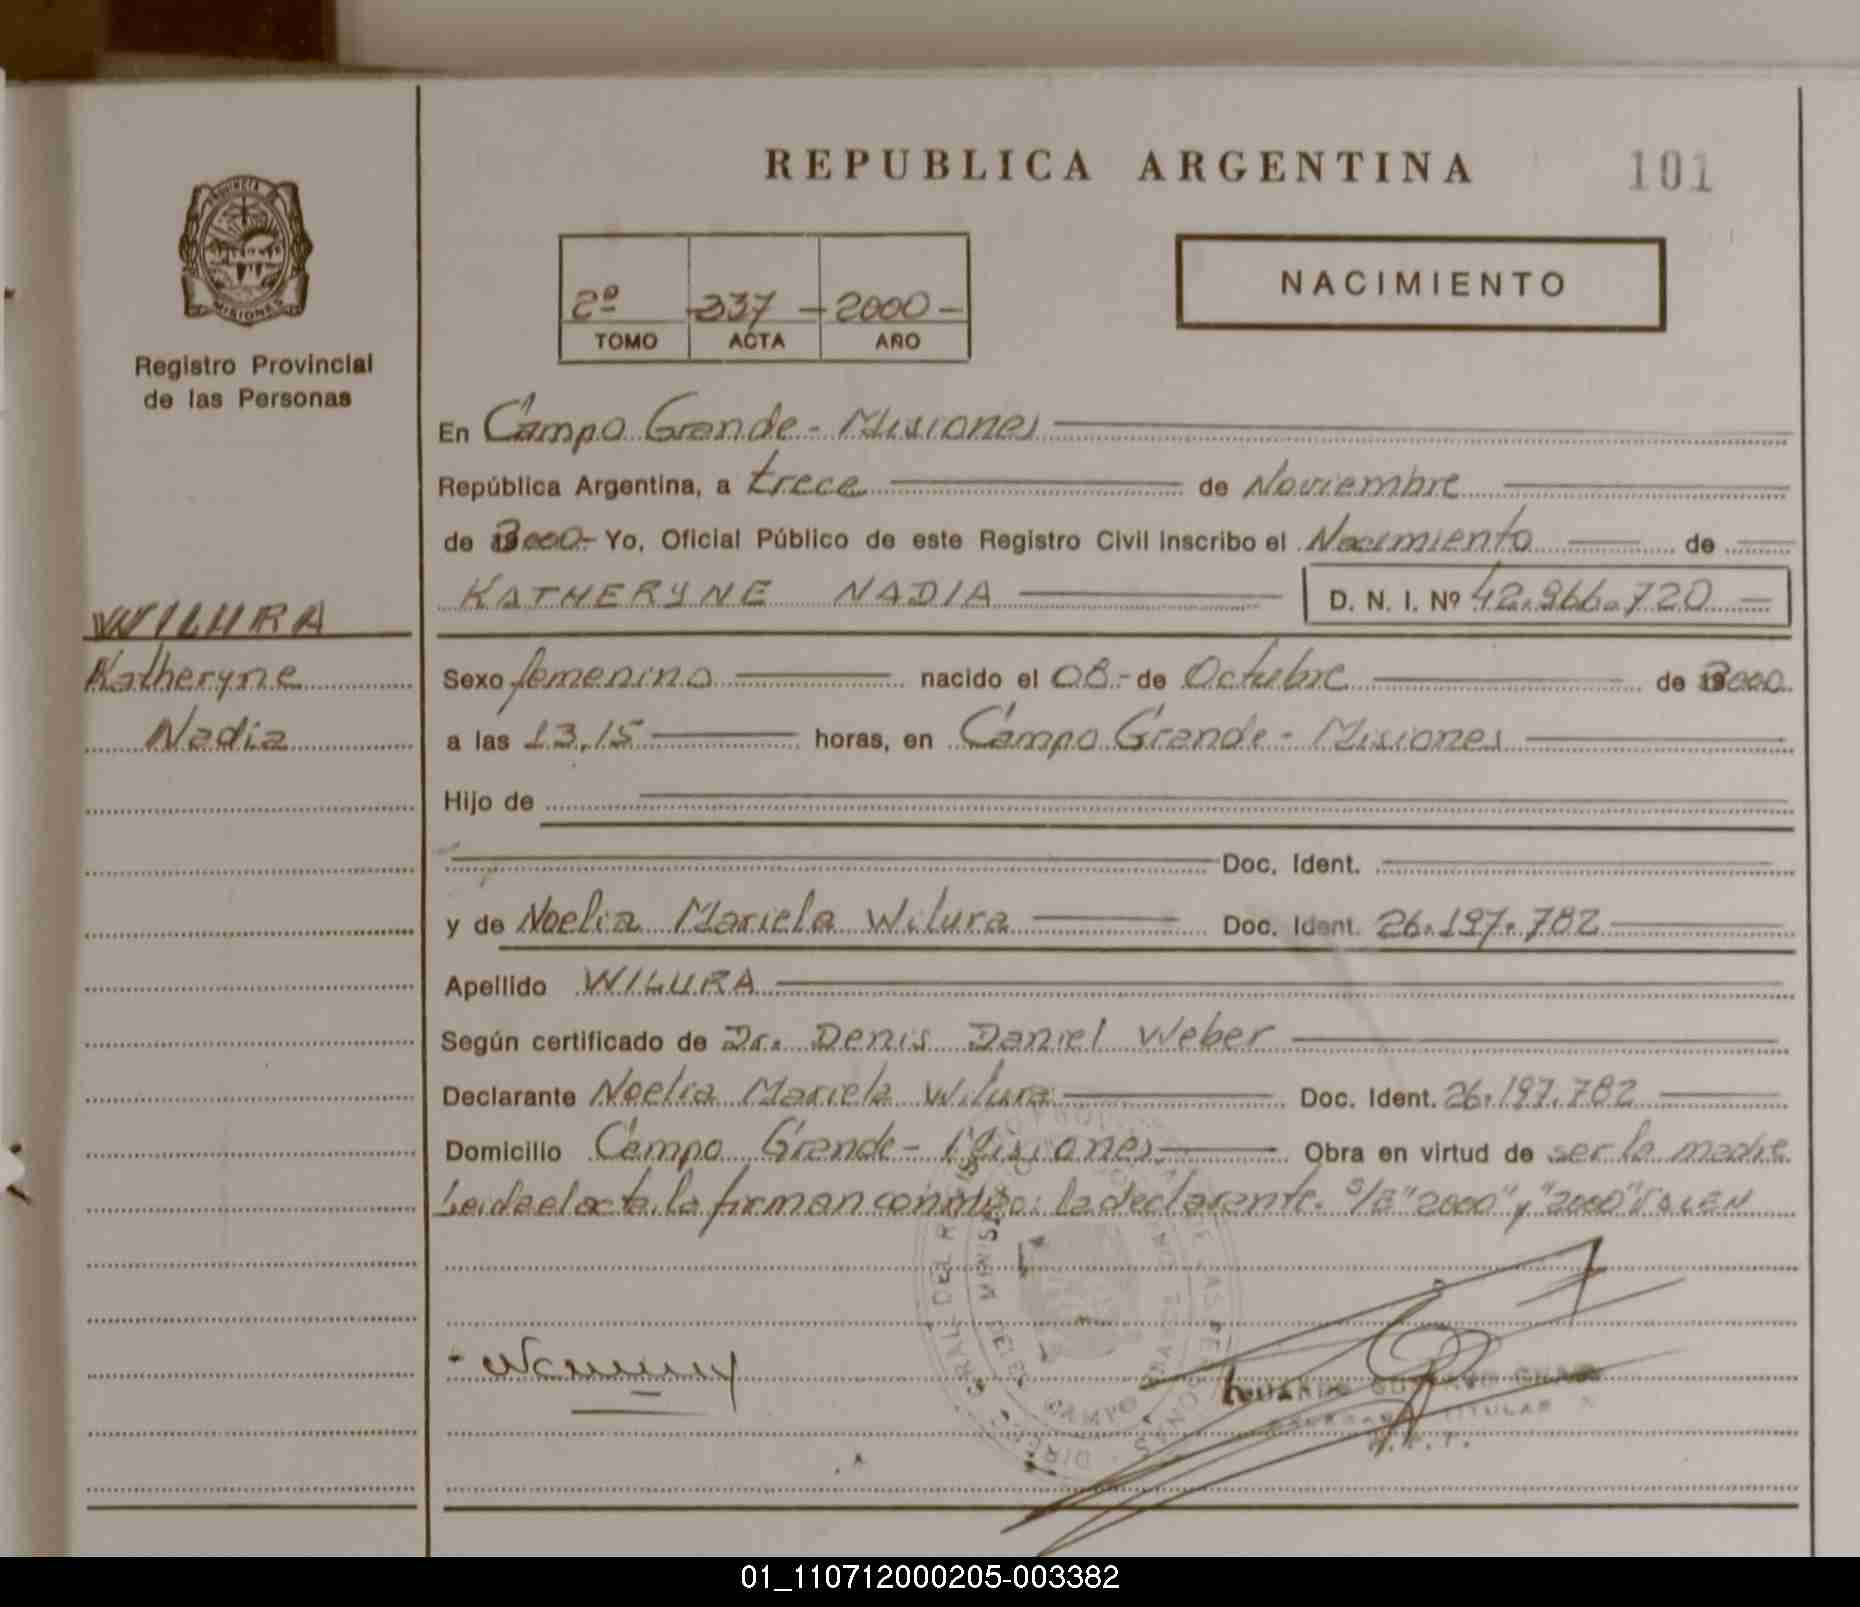 REPUBLICA ARGENTINA
101
PROVINCIA
MISIONES
Registro Provincial
de las Personas
2º 337 - 2000 -
TOMO ACTA AÑO
NACIMIENTO
En Campo Grande - Misiones
República Argentina, a trece de Noviembre
de 2000- Yo, Oficial Público de este Registro Civil inscribo el Nacimiento de
KATHERYNE NADIA D. N. I. Nº 42.966.720 -
WILURA
Katheryne
Nadia
Sexo femenino nacido el 08.- de Octubre de 2000
a las 13,15 horas, en Campo Grande - Misiones
Hijo de
Doc. Ident.
y de Noelia Mariela Wilura Doc. Ident. 26.197.782
Apellido WILURA
Según certificado de Dr. Denis Daniel Weber
Declarante Noelia Mariela Wilura Doc. Ident. 26.197.782
Domicilio Campo Grande - Misiones Obra en virtud de ser la madre
Leida el acta, la firman conmigo: la declarante. S/B "2000" y "2000" VALEN
CAMPO
TITULAR
01_110712000205-003382